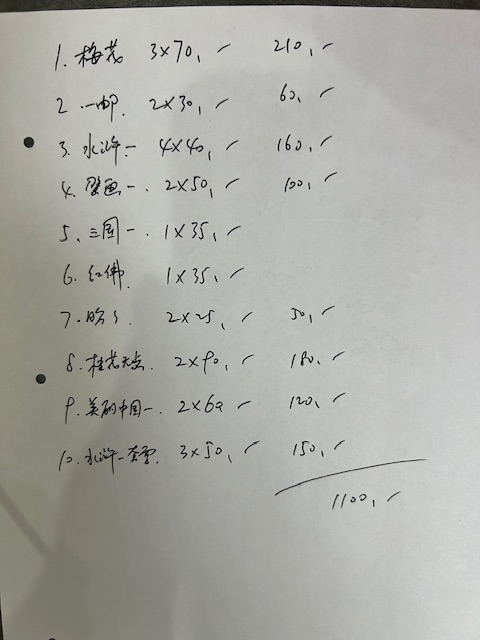 1. 梅花 3×70,- 210,-
2. 一邮. 2×30,- 60,-
3. 水浒一 4×40,- 160,-
4. 壁画一. 2×50,- 100,-
5. 三国一. 1×35,-
6. 红佛. 1×35,-
7. 2×25,- 50,-
8. 桂花 2×90,- 180,-
9. 美丽中国一. 2×60 120,-
10. 水浒一套票. 3×50,- 150,-
1100,-